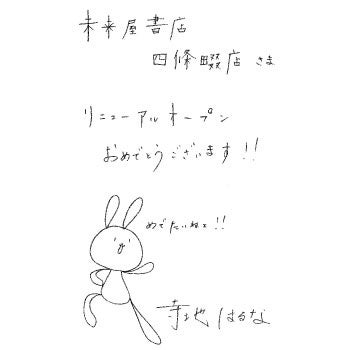 未来屋書店
四條畷店 さま
リニューアルオープン
おめでとうございます!!
めでたいねぇ!!
寺地はるな